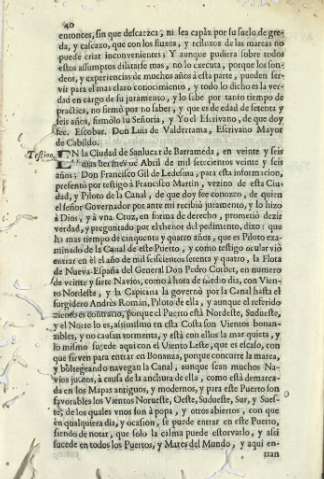 40
entonces, sin que descaezca, ni las capas por su suelo de gre-
da, y cascaxo, que con los fluxos, y refluxos de las mareas no
puede criar inconvenientes; Y aunque pudiera sobre todos
estos assumptos dilatarse mas, no lo executa, porque los son-
dent, y experiencias de muchos años à esta parte, pueden ser-
vir para el mas claro conocimiento, y todo lo dicho es la ver-
dad en cargo de su juramento, y lo sabe por tanto tiempo de
practica, no firmò por no saber, y que es de edad de setenta y
seis años, firmòlo su Señoria, y Yo el Escrivano, de que doy
fee. Escobar. Don Luis de Valderrama, Escrivano Mayor
de Cabildo.
Testigo.
EN la Ciudad de Sanlucar de Barrameda, en veinte y seis
dias del mes de Abril de mil setecientos veinte y seis
años; Don Francisco Gil de Ledesma, para esta informacion,
presentò por testigo à Francisco Martin, vezino de esta Ciu-
dad, y Piloto de la Canal, de que doy fee conozco, de quien
el señor Governador por ante mi recibiò juramento, y lo hizo
à Dios, y à vna Cruz, en forma de derecho, prometiò dezir
verdad, y preguntado por el thenor del pedimento, dixo: que
ha mas tiempo de cinquenta y quatro años, que es Piloto exa-
minado de la Canal de este Puerto, y como testigo ocular viò
entrar en èl el año de mil seiscientos setenta y quatro, la Flota
de Nueva-España del General Don Pedro Corbet, en numero
de veinte y siete Navios, como à hora de medio dia, con Vien-
to Nordeste, y la Capitana la governò por la Canal hasta el
surgidero Andrès Romàn, Piloto de ella, y aunque el referido
viento es contrario, porque el Puerto està Nordeste, Sudueste,
y el Norte lo es, assimismo en esta Costa son Vientos bonan-
zibles, y no causan tormenta, y està con ellos la mar quieta, y
lo mismo sucede aqui con el Viento Leste, que es el caso, con
que sirven para entrar en Bonanza, porque concurre la marea,
y bolsegeando navegan la Canal, aunque sean muchos Na-
vios juntos, à causa de la anchura de ella, como està demarca-
da en los Mapas antiguos, y modernos, y para este Puerto son
favorables los Vientos Norueste, Oeste, Sudueste, Sur, y Sues-
te; de los quales vnos son à popa, y otros abiertos, con que
en qualquiera dia, y ocasion, se puede entrar en este Puerto,
siendo de notar, que solo la calma puede estorvarlo, y assi
sucede en todos los Puertos, y Mares del Mundo, y aqui en-
tran